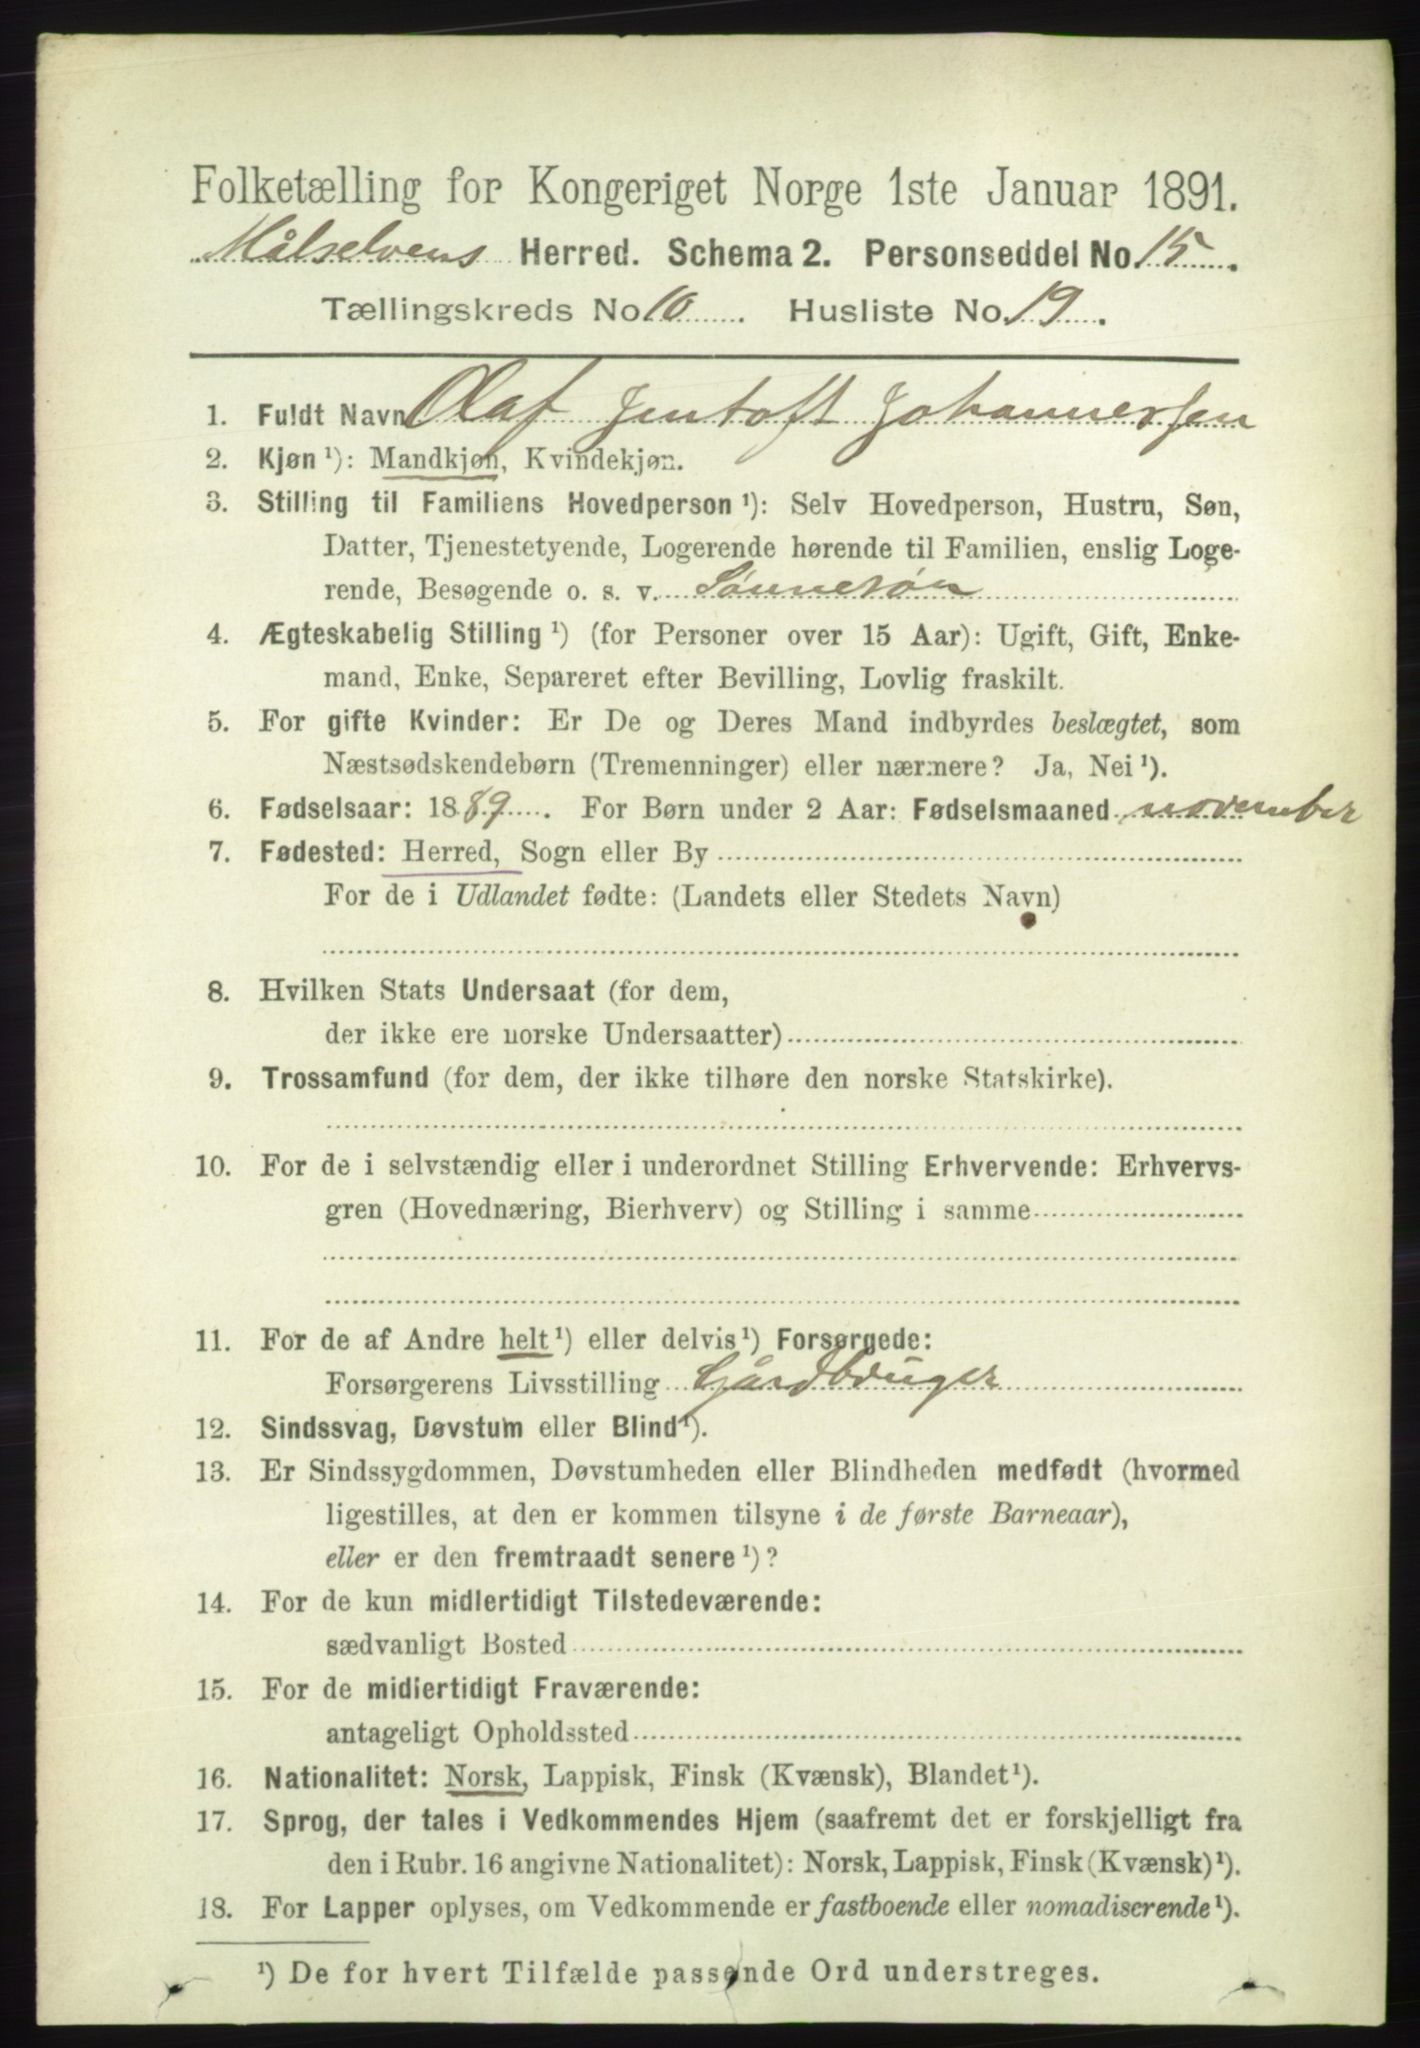 Folketælling for Kongeriget Norge 1ste Januar 1891.
Målselvens Herred. Schema 2. Personseddel No. 15
Tællingskreds No. 10. Husliste No. 19.
1. Fuldt Navn Olaf Jentoft Johannessen
2. Kjøn ¹): Mandkjøn, Kvindekjøn.
3. Stilling til Familiens Hovedperson ¹): Selv Hovedperson, Hustru, Søn,
Datter, Tjenestetyende, Logerende hørende til Familien, enslig Loge-
rende, Besøgende o. s. v. Sønnesøn
4. Ægteskabelig Stilling ¹) (for Personer over 15 Aar): Ugift, Gift, Enke-
mand, Enke, Separeret efter Bevilling, Lovlig fraskilt.
5. For gifte Kvinder: Er De og Deres Mand indbyrdes beslægtet, som
Næstsødskendebørn (Tremenninger) eller nærmere? Ja, Nei ¹).
6. Fødselsaar: 1889. For Børn under 2 Aar: Fødselsmaaned november
7. Fødested: Herred, Sogn eller By
For de i Udlandet fødte: (Landets eller Stedets Navn)
8. Hvilken Stats Undersaat (for dem,
der ikke ere norske Undersaatter)
9. Trossamfund (for dem, der ikke tilhøre den norske Statskirke).
10. For de i selvstændig eller i underordnet Stilling Erhvervende: Erhvervs-
gren (Hovednæring, Bierhverv) og Stilling i samme
11. For de af Andre helt ¹) eller delvis ¹) Forsørgede:
Forsørgerens Livsstilling Gårdbruger
12. Sindssvag, Døvstum eller Blind ¹).
13. Er Sindssygdommen, Døvstumheden eller Blindheden medfødt (hvormed
ligestilles, at den er kommen tilsyne i de første Barneaar),
eller er den fremtraadt senere ¹)?
14. For de kun midlertidigt Tilstedeværende:
sædvanligt Bosted
15. For de midlertidigt Fraværende:
antageligt Opholdssted
16. Nationalitet: Norsk, Lappisk, Finsk (Kvænsk), Blandet ¹).
17. Sprog, der tales i Vedkommendes Hjem (saafremt det er forskjelligt fra
den i Rubr. 16 angivne Nationalitet): Norsk, Lappisk, Finsk (Kvænsk) ¹).
18. For Lapper oplyses, om Vedkommende er fastboende eller nomadiserende ¹).
¹) De for hvert Tilfælde passende Ord understreges.